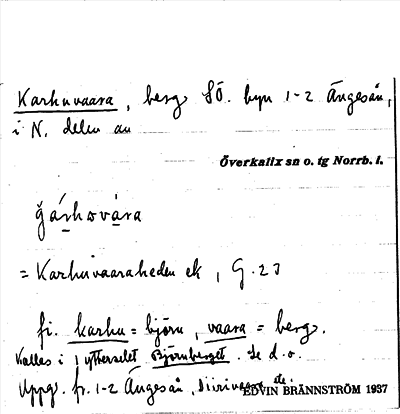 Karhuvaara, berg SÖ. byn 1-2 Ängesån,
i N. delen av
Överkalix sn o. tg Norrb. l.
= Karhuvaaraheden ek, G. 23
fi. karhu = björn, vaara = berg.
Kallas i ytterselet Björnberget. Se d.o.
Uppg. fr. 1-2 Ängesån,
EDVIN BRÄNNSTRÖM 1937